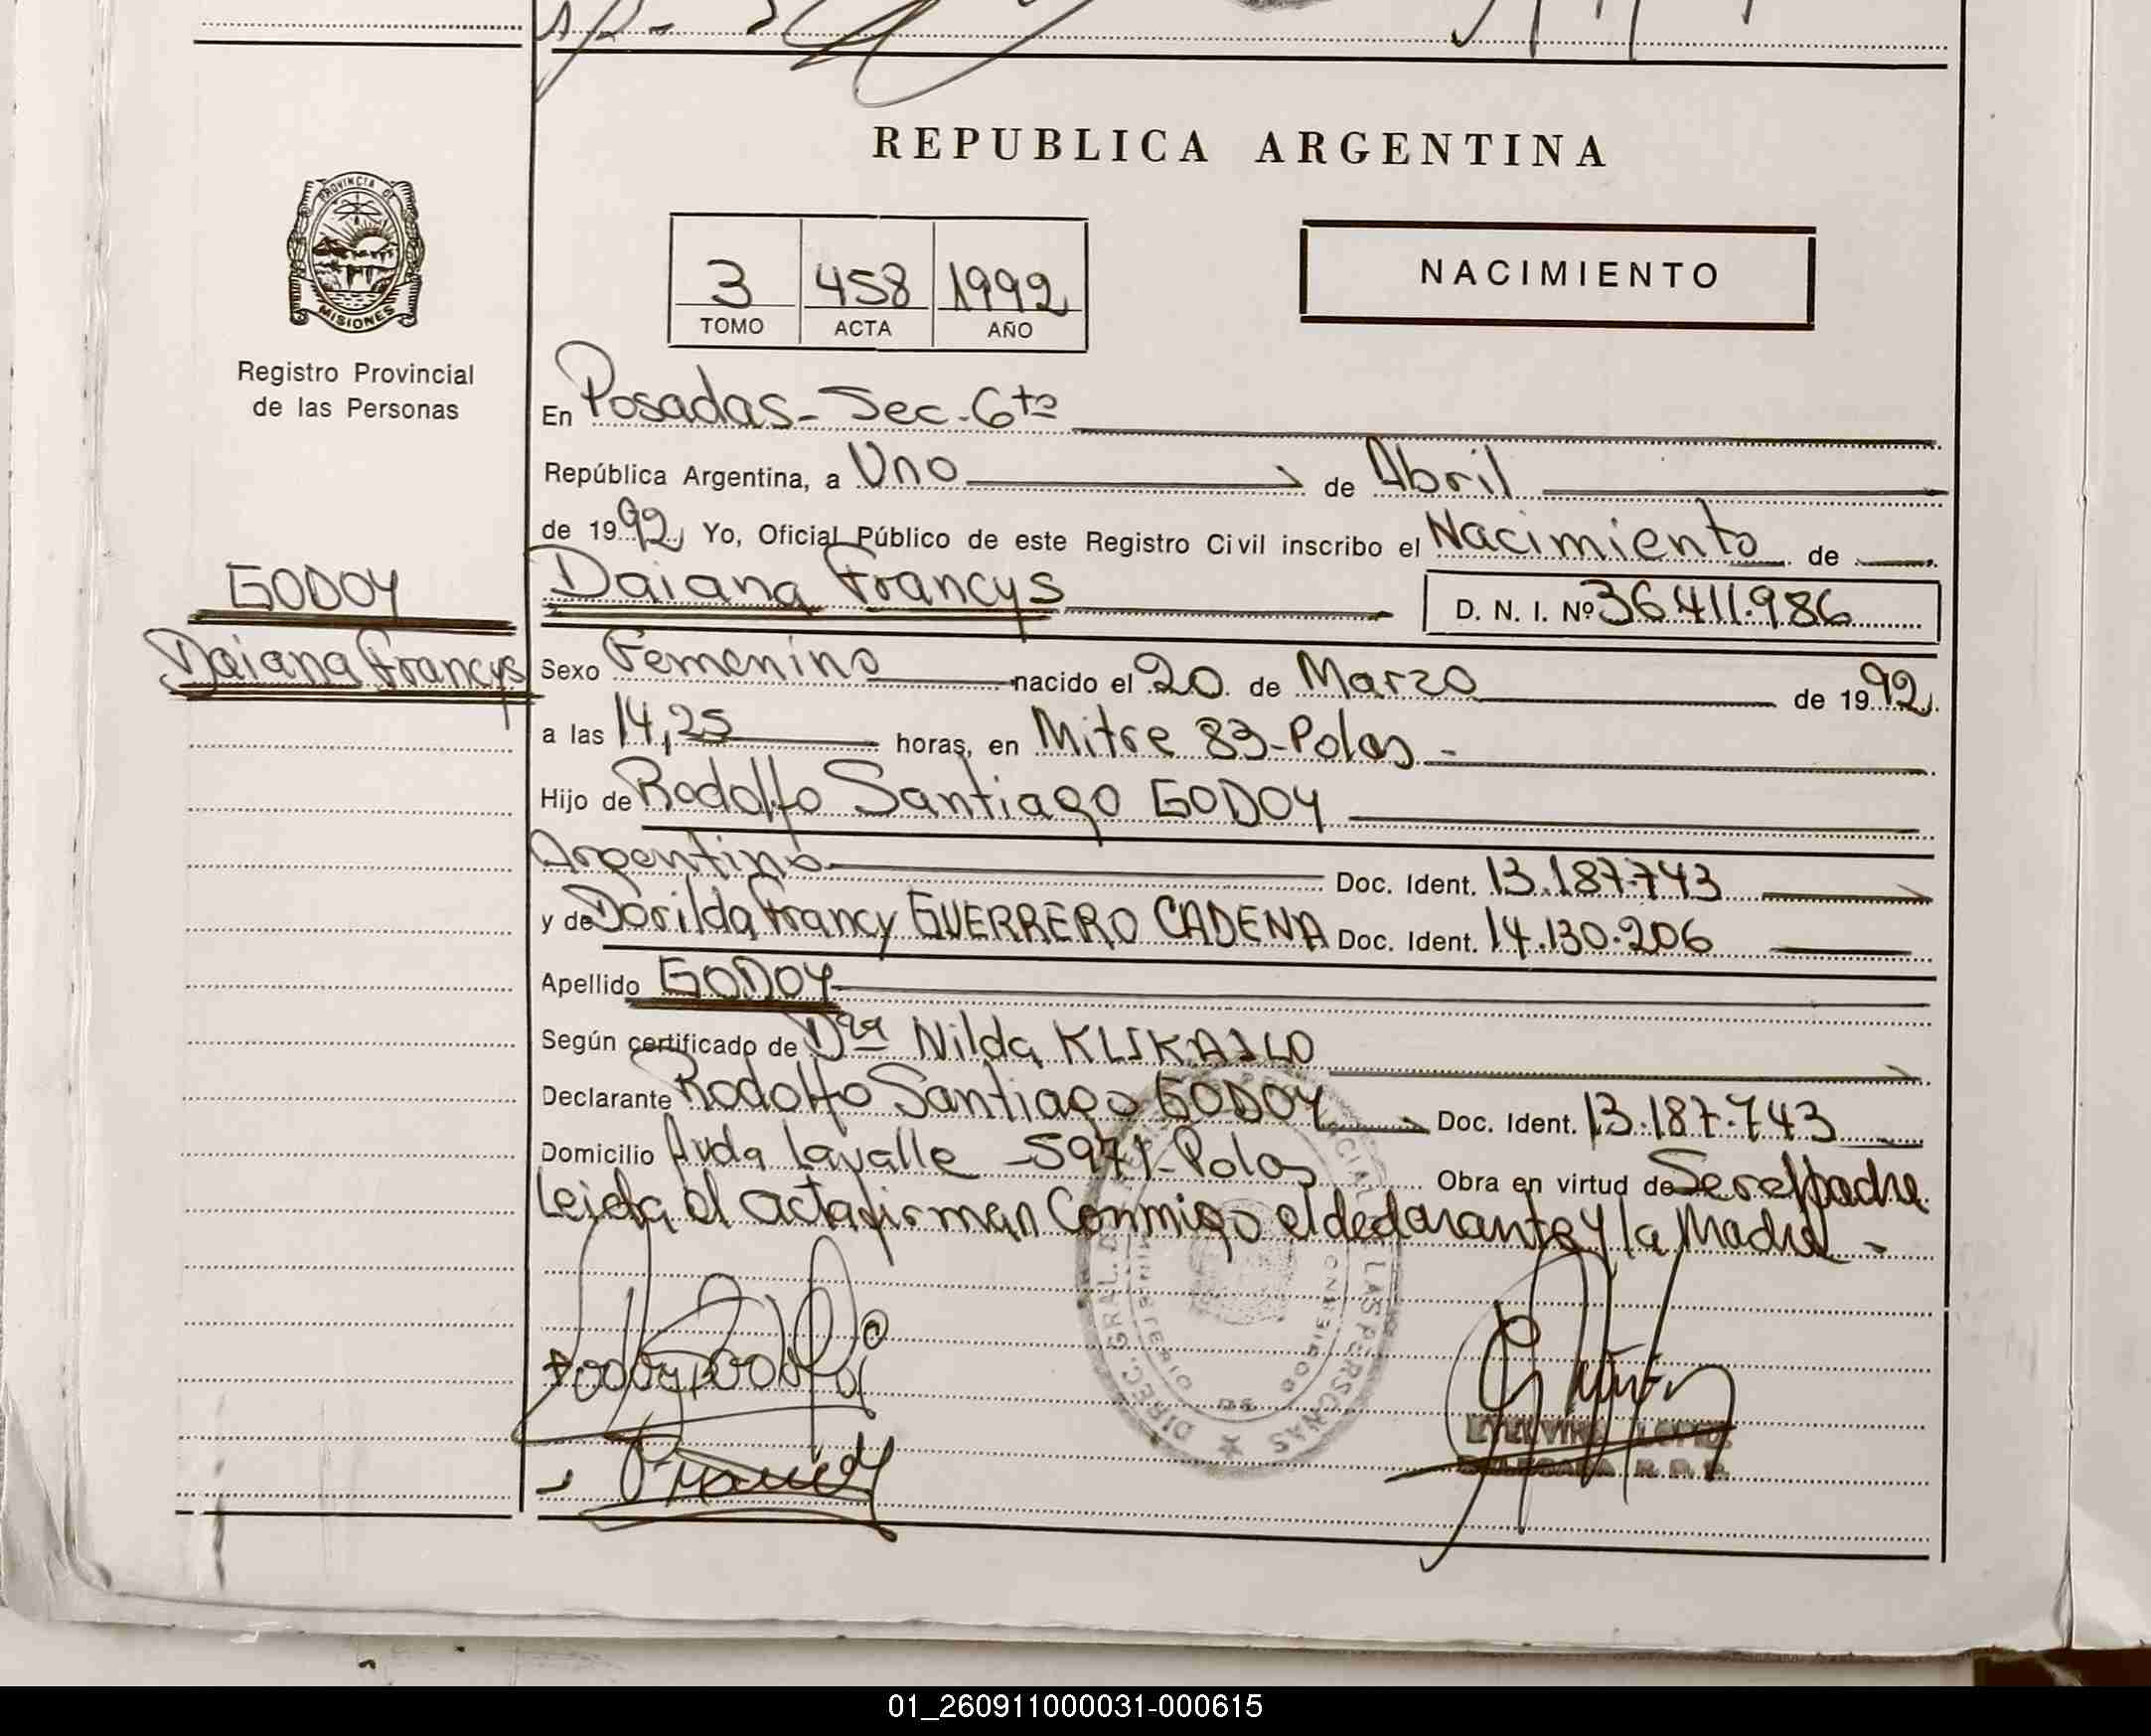 REPUBLICA ARGENTINA
PROVINCIA DE
MISIONES
Registro Provincial
de las Personas
3 458 1992
TOMO ACTA AÑO
NACIMIENTO
En Posadas - Sec. 6ta
República Argentina, a Uno de Abril
de 1992 Yo, Oficial Público de este Registro Civil inscribo el Nacimiento de
GODOY
Daiana Francys
Daiana Francys D. N. I. Nº 36.411.986
Sexo Femenino nacido el 20 de Marzo de 1992
a las 14,25 horas, en Mitre 83-Pdas -
Hijo de Rodolfo Santiago GODOY
Argentino Doc. Ident. 13.187.743
y de Dorilda Francy GUERRERO CADENA Doc. Ident. 14.130.206
Apellido GODOY
Según certificado de Dra Nilda
Declarante Rodolfo Santiago GODOY Doc. Ident. 13.187.743
Domicilio Avda Lavalle - 5971-Pdas Obra en virtud de Ser el padre
Leida el acta firman Conmigo el declarante y la Madre -
DIREC. GRAL. DE LAS PERSONAS
MINISTERIO DE GOBIERNO
LOPEZ
DELEGADA R. P. P.
01_260911000031-000615